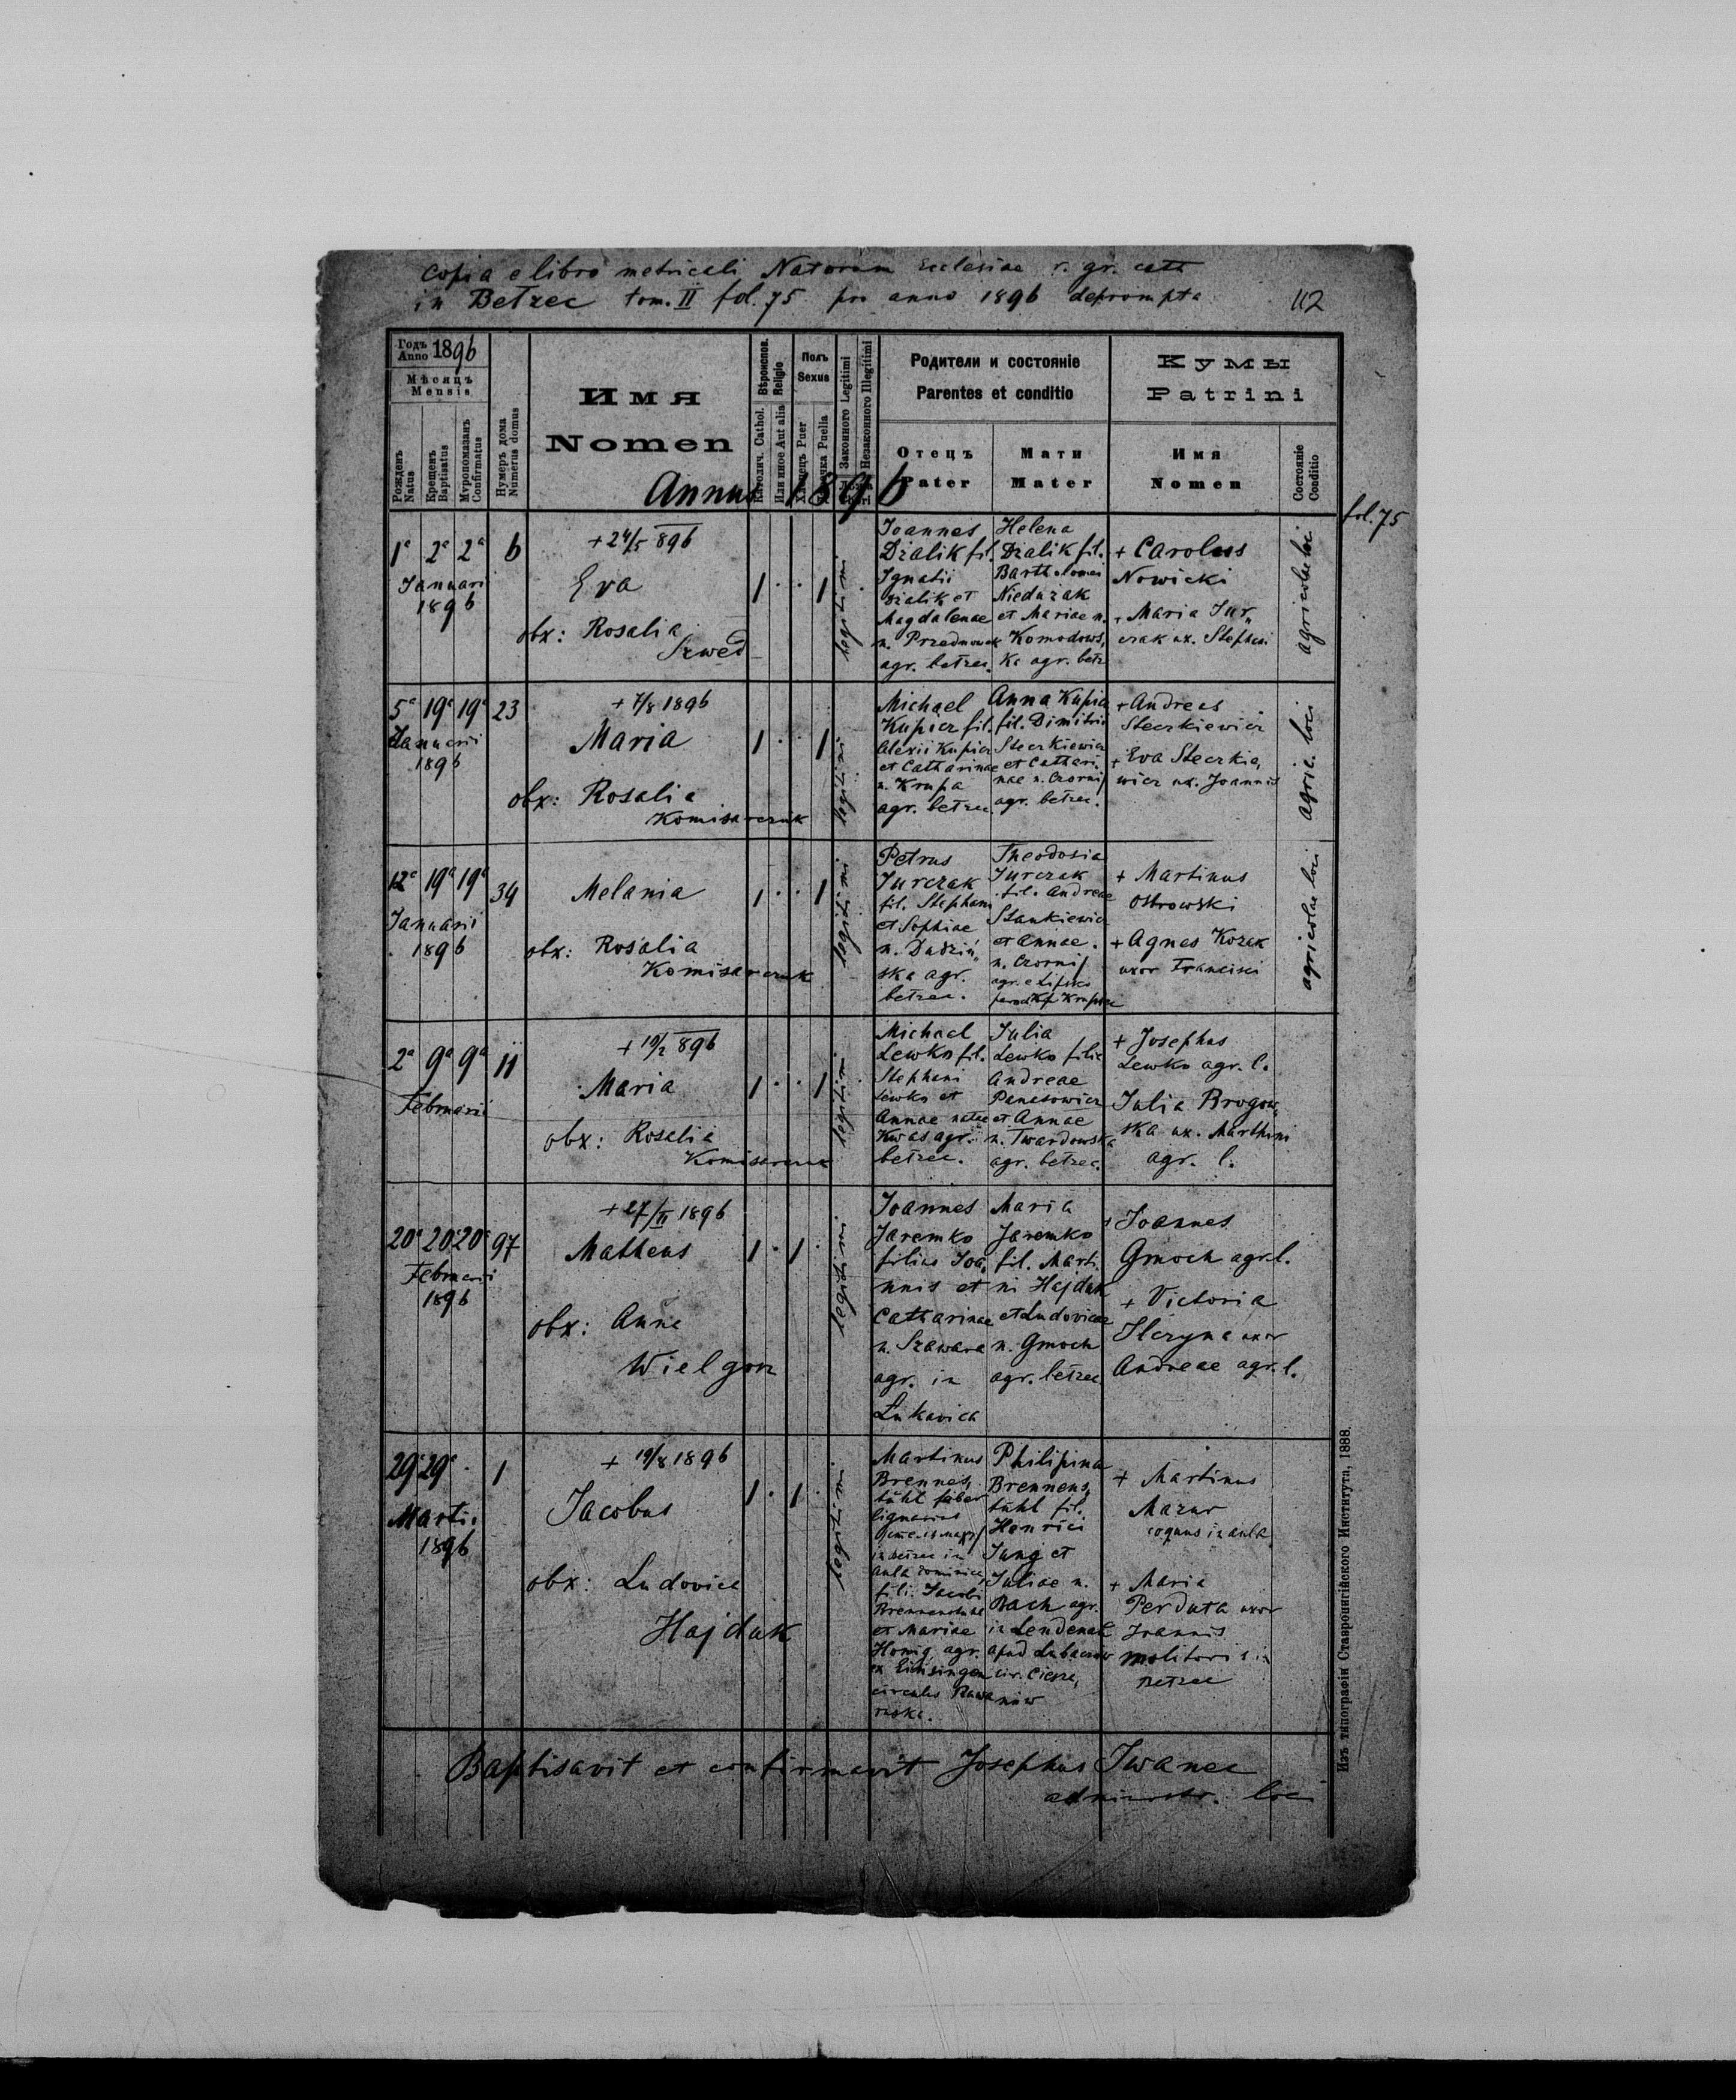 Copia e libro metricali Natorum Ecclesiae r. gr. cath
in Bełzec tom. II fol. 75 pro anno 1896 deprompta
112
Годъ Anno 1896
Мѣсяцъ Mensis
Рожденъ Natus
Крещенъ Baptisatus
Муропомазанъ Confirmatus
Нумеръ дома Numerus domus
Имя
Nomen
Вѣроиспов. Religio
Католич. Cathol.
Или иное Aut alia
Полъ Sexus
Хлопецъ Puer
Puella
Законного Legitimi
Незаконного Illegitimi
Родители и состояніе
Parentes et conditio
Отецъ
Pater
Мати
Mater
Кумы
Patrini
Имя
Nomen
Состояніе
Conditio
Annus 1896
fol. 75
1a 2a 2a
Januarii
1896
6
+ 24/5 896
Eva
obx: Rosalia
Szwed
1 . . 1
legit. m.
Joannes
Dzalik fil.
Ignatii
Dzalik et
Magdalenae
agr. bełzec.
Helena
Dzalik fil.
Bartholomei
Nieduzak
et Mariae n.
Komodows,
ka agr. bełz
+ Carolus
Nowicki
+ Maria Jur„
czak ux. Stephani
agricolae loci
5a 19a 19a
Januarii
1896
23
+ 7/8 1896
Maria
obx: Rosalia
Komisarczuk
1 . . 1
Michael
Kupicz fil.
Alexii Kupicz
et Catharinae
n. Krupa
agr. bełzec.
Anna Kupicz
fil. Dimitrii
Steczkiewicz
et Cathari,
nae n. Czornij
agr. bełzec.
+ Andreas
Steczkiewicz
+ Eva Steczkie,
wicz ux. Joannis
agric. loci
12a 19a 19a
Januarii
1896
34
Melania
obx: Rosalia
Komisarczuk
1 . . 1
Petrus
Jurczak
fil. Stephani
et Sophiae
n. Dudziń„
ska agr.
bełzec.
Theodosia
Jurczak
fil. Andreae
Stankiewicz
et Annae.
n. Czornij
+ Martinus
Ostrowski
+ Agnes Kozak
uxor Francisci
agricolae loci
2a 9a 9a
Februarii
11
+ 10/2 896
Maria
obx: Rosalia
Komisarczuk
1 . . 1
Michael
Lewko fil.
Stephani
Lewko et
Annae natae
Kwas agr.
bełzec.
Julia
Lewko filia
Andreae
Panasowicz
et Annae
n. Twardowska
agr. bełzec.
+ Josephus
Lewko agr. l.
Julia Brogow„
ska ux. Marthini
agr. l.
20a 20a 20a
Februarii
1896
97
+ 27/II 1896
Matheus
obx: Anna
Wielgosz
1 . 1 .
Joannes
Jaremko
filius Joa,
nnis et
Catharinae
n. Szawara
agr. in
Łukawica
Maria
Jaremko
fil. Marti.
ni Hajduk
et Ludovicae
n. Gmoch
agr. bełzec
+ Joannes
Gmoch agr. l.
+ Victoria
Ilczyna uxor
Andreae agr. l.
29a 29a .
Marti.
1896
1
+ 19/8 1896
Jacobus
obx: Ludovica
Hajduk
1 . 1 .
Martinus
Brennes,
tuhl faber
lignarius
in bełzec in
aula dominica,
fil. Jacobi
Brennenstuhl
et Mariae
Honig, agr.
ex Einsingen
circulus Rawa
ruska.
Philipina
Brennens,
tuhl fil.
Henrici
Jung et
Juliae n.
Bach agr.
in Lendenau
apud Lubaczow
cir. Ciesza,
nów
+ Martinus
Mazur
coquus in aula
+ Maria
Perduta uxor
Joannis
molitoris in
Bełzec
Baptisavit et confirmavit Josephus Iwanec
administr. loci
Изъ типографіи Ставропигійского Института, 1888.